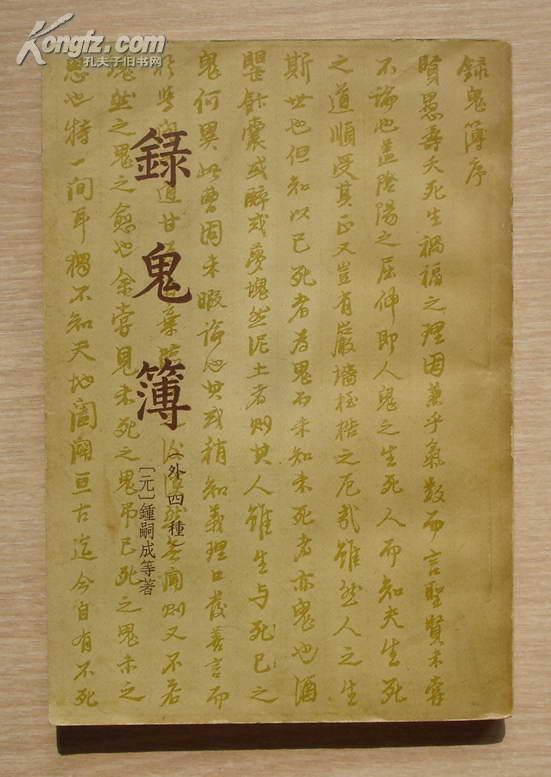 Kongfz.com
孔夫子旧书网
錄鬼簿
（外四種）
〔元〕鍾嗣成等著
録鬼簿序
賢愚壽夭死生禍福之理固兼乎氣數而言聖賢未嘗
不論也蓋陰陽之屈伸即人鬼之生死人而知夫生死
之道順受其正又豈有巖墻桎梏之厄哉雖然人之生
斯世也但知以已死者為鬼而未知未死者亦鬼也酒
罌飯囊或醉或夢塊然泥土者則其人雖生與死已之
鬼何異此曹固未暇論也其或稍知義理口發善言而
於學道甘棄然無聞則又不若
塊然之鬼之愈也余嘗見未死之鬼弔已死之鬼未之
思也特一間耳獨不知天地闔闢亘古迄今自有不死